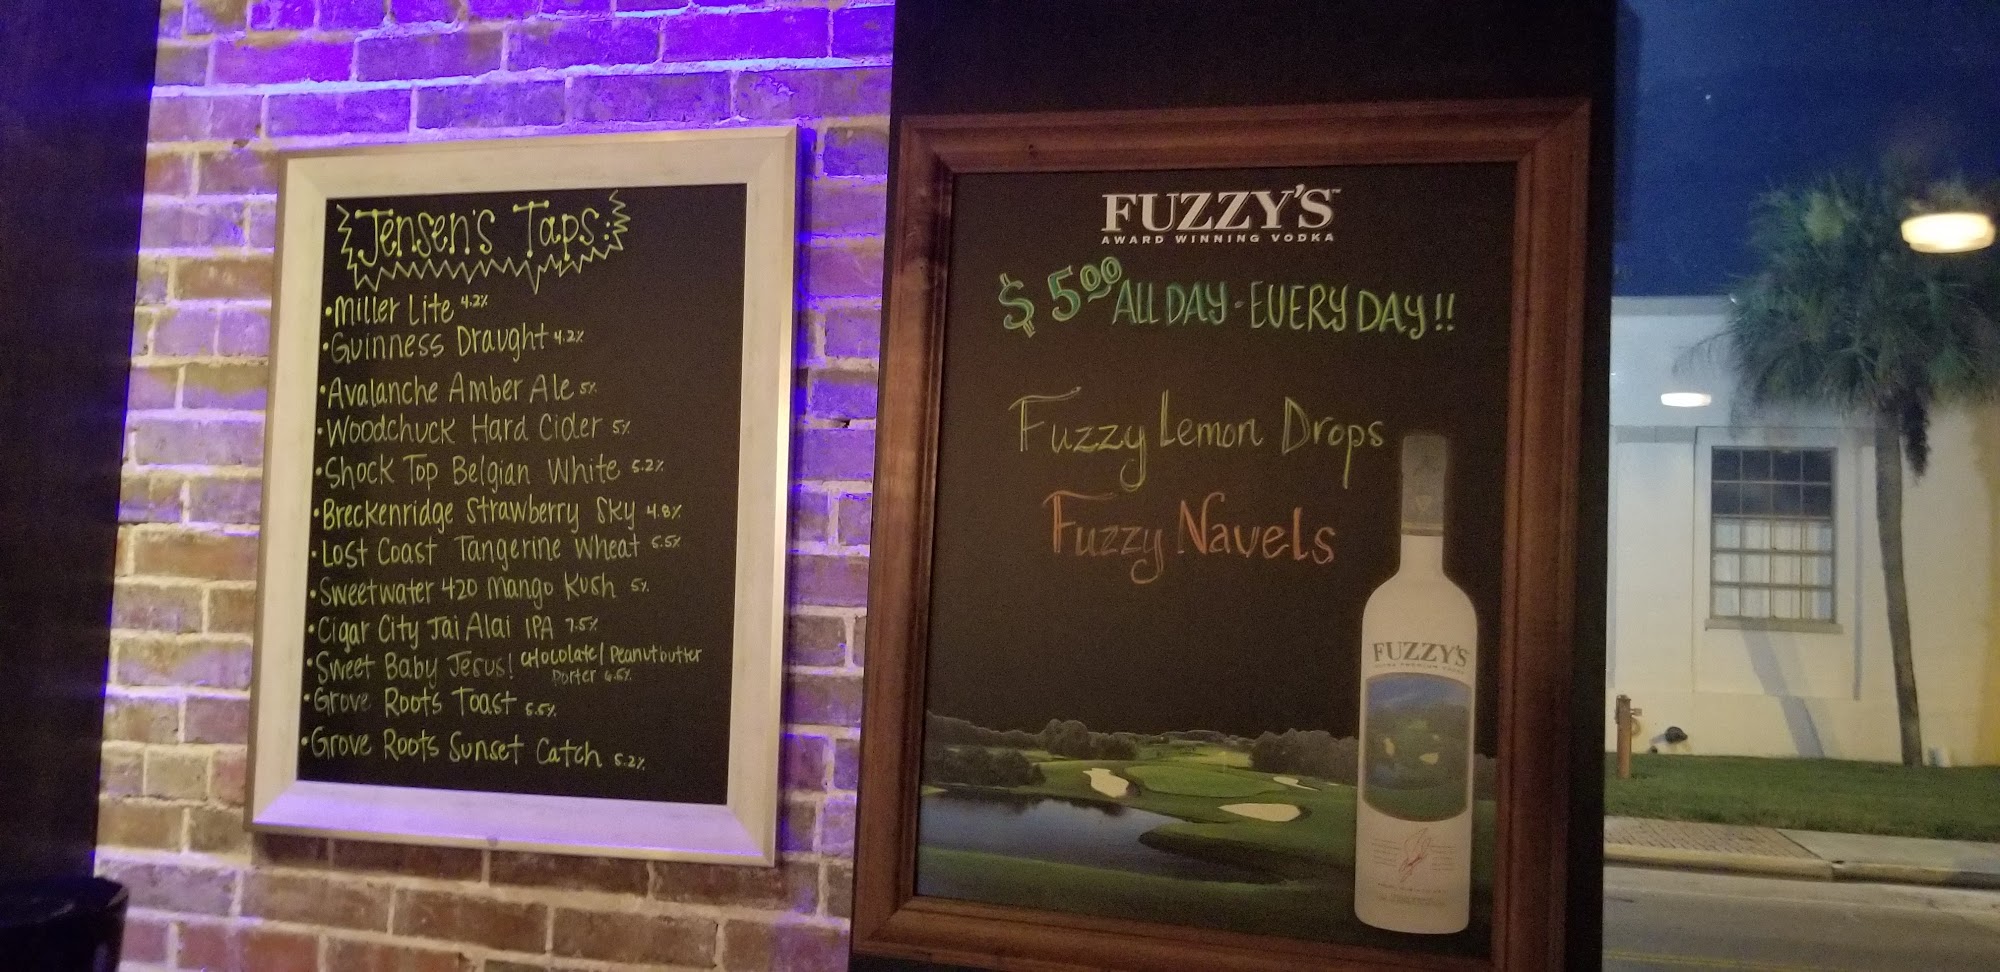 Jensen's Taps:
• Miller Lite 4.2%
• Guinness Draught 4.2%
• Avalanche Amber Ale 5%
• Woodchuck Hard Cider 5%
• Shock Top Belgian White 5.2%
• Breckenridge Strawberry Sky 4.8%
• Lost Coast Tangerine Wheat 5.5%
• Sweetwater 420 Mango Kush 5%
• Cigar City Jai Alai IPA 7.5%
• Sweet Baby Jesus! Chocolate/Peanutbutter
Porter 6.5%
• Grove Roots Toast 5.5%
• Grove Roots Sunset Catch 5.2%
FUZZY'S™
AWARD WINNING VODKA
$5.00 ALL DAY - EVERY DAY!!
Fuzzy Lemon Drops
Fuzzy Navels
FUZZY'S